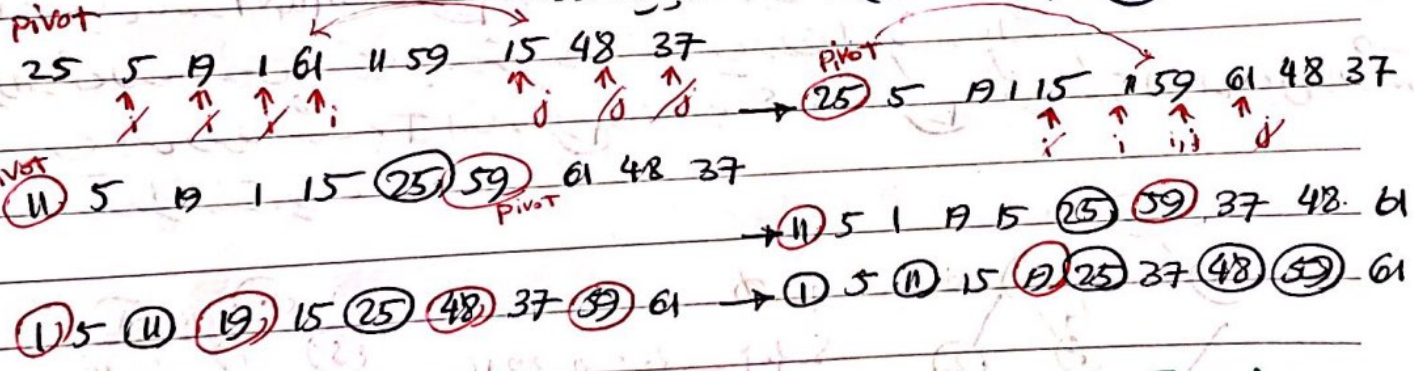 pivot
25 5 19 1 61 11 59 15 48 37
i i i i j j j
pivot
→ 25 5 19 1 15 11 59 61 48 37
i i i,j j
pivot
11 5 19 1 15 25 59 61 48 37
pivot
→ 11 5 1 19 15 25 59 37 48 61
1 5 11 19 15 25 48 37 59 61 → 1 5 11 15 19 25 37 48 59 61